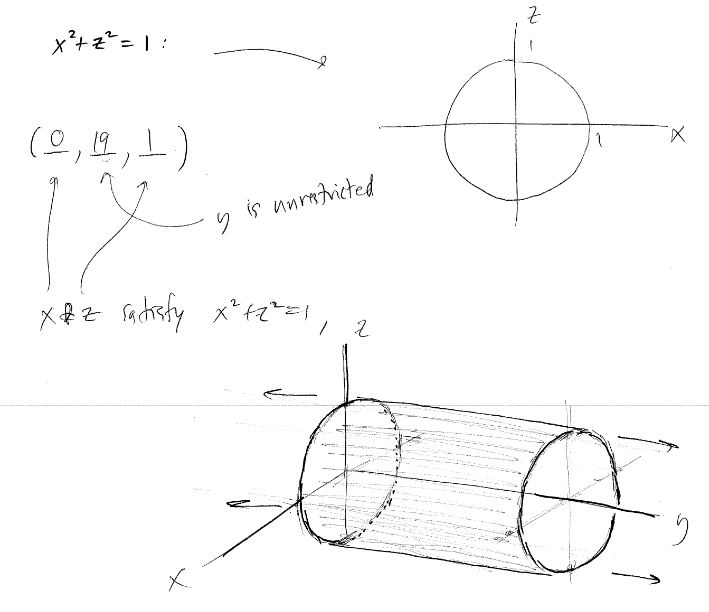 x²+z²=1:
z
1
x
1
(0, 19, 1)
y is unrestricted
x & z satisfy x²+z²=1,
z
y
x